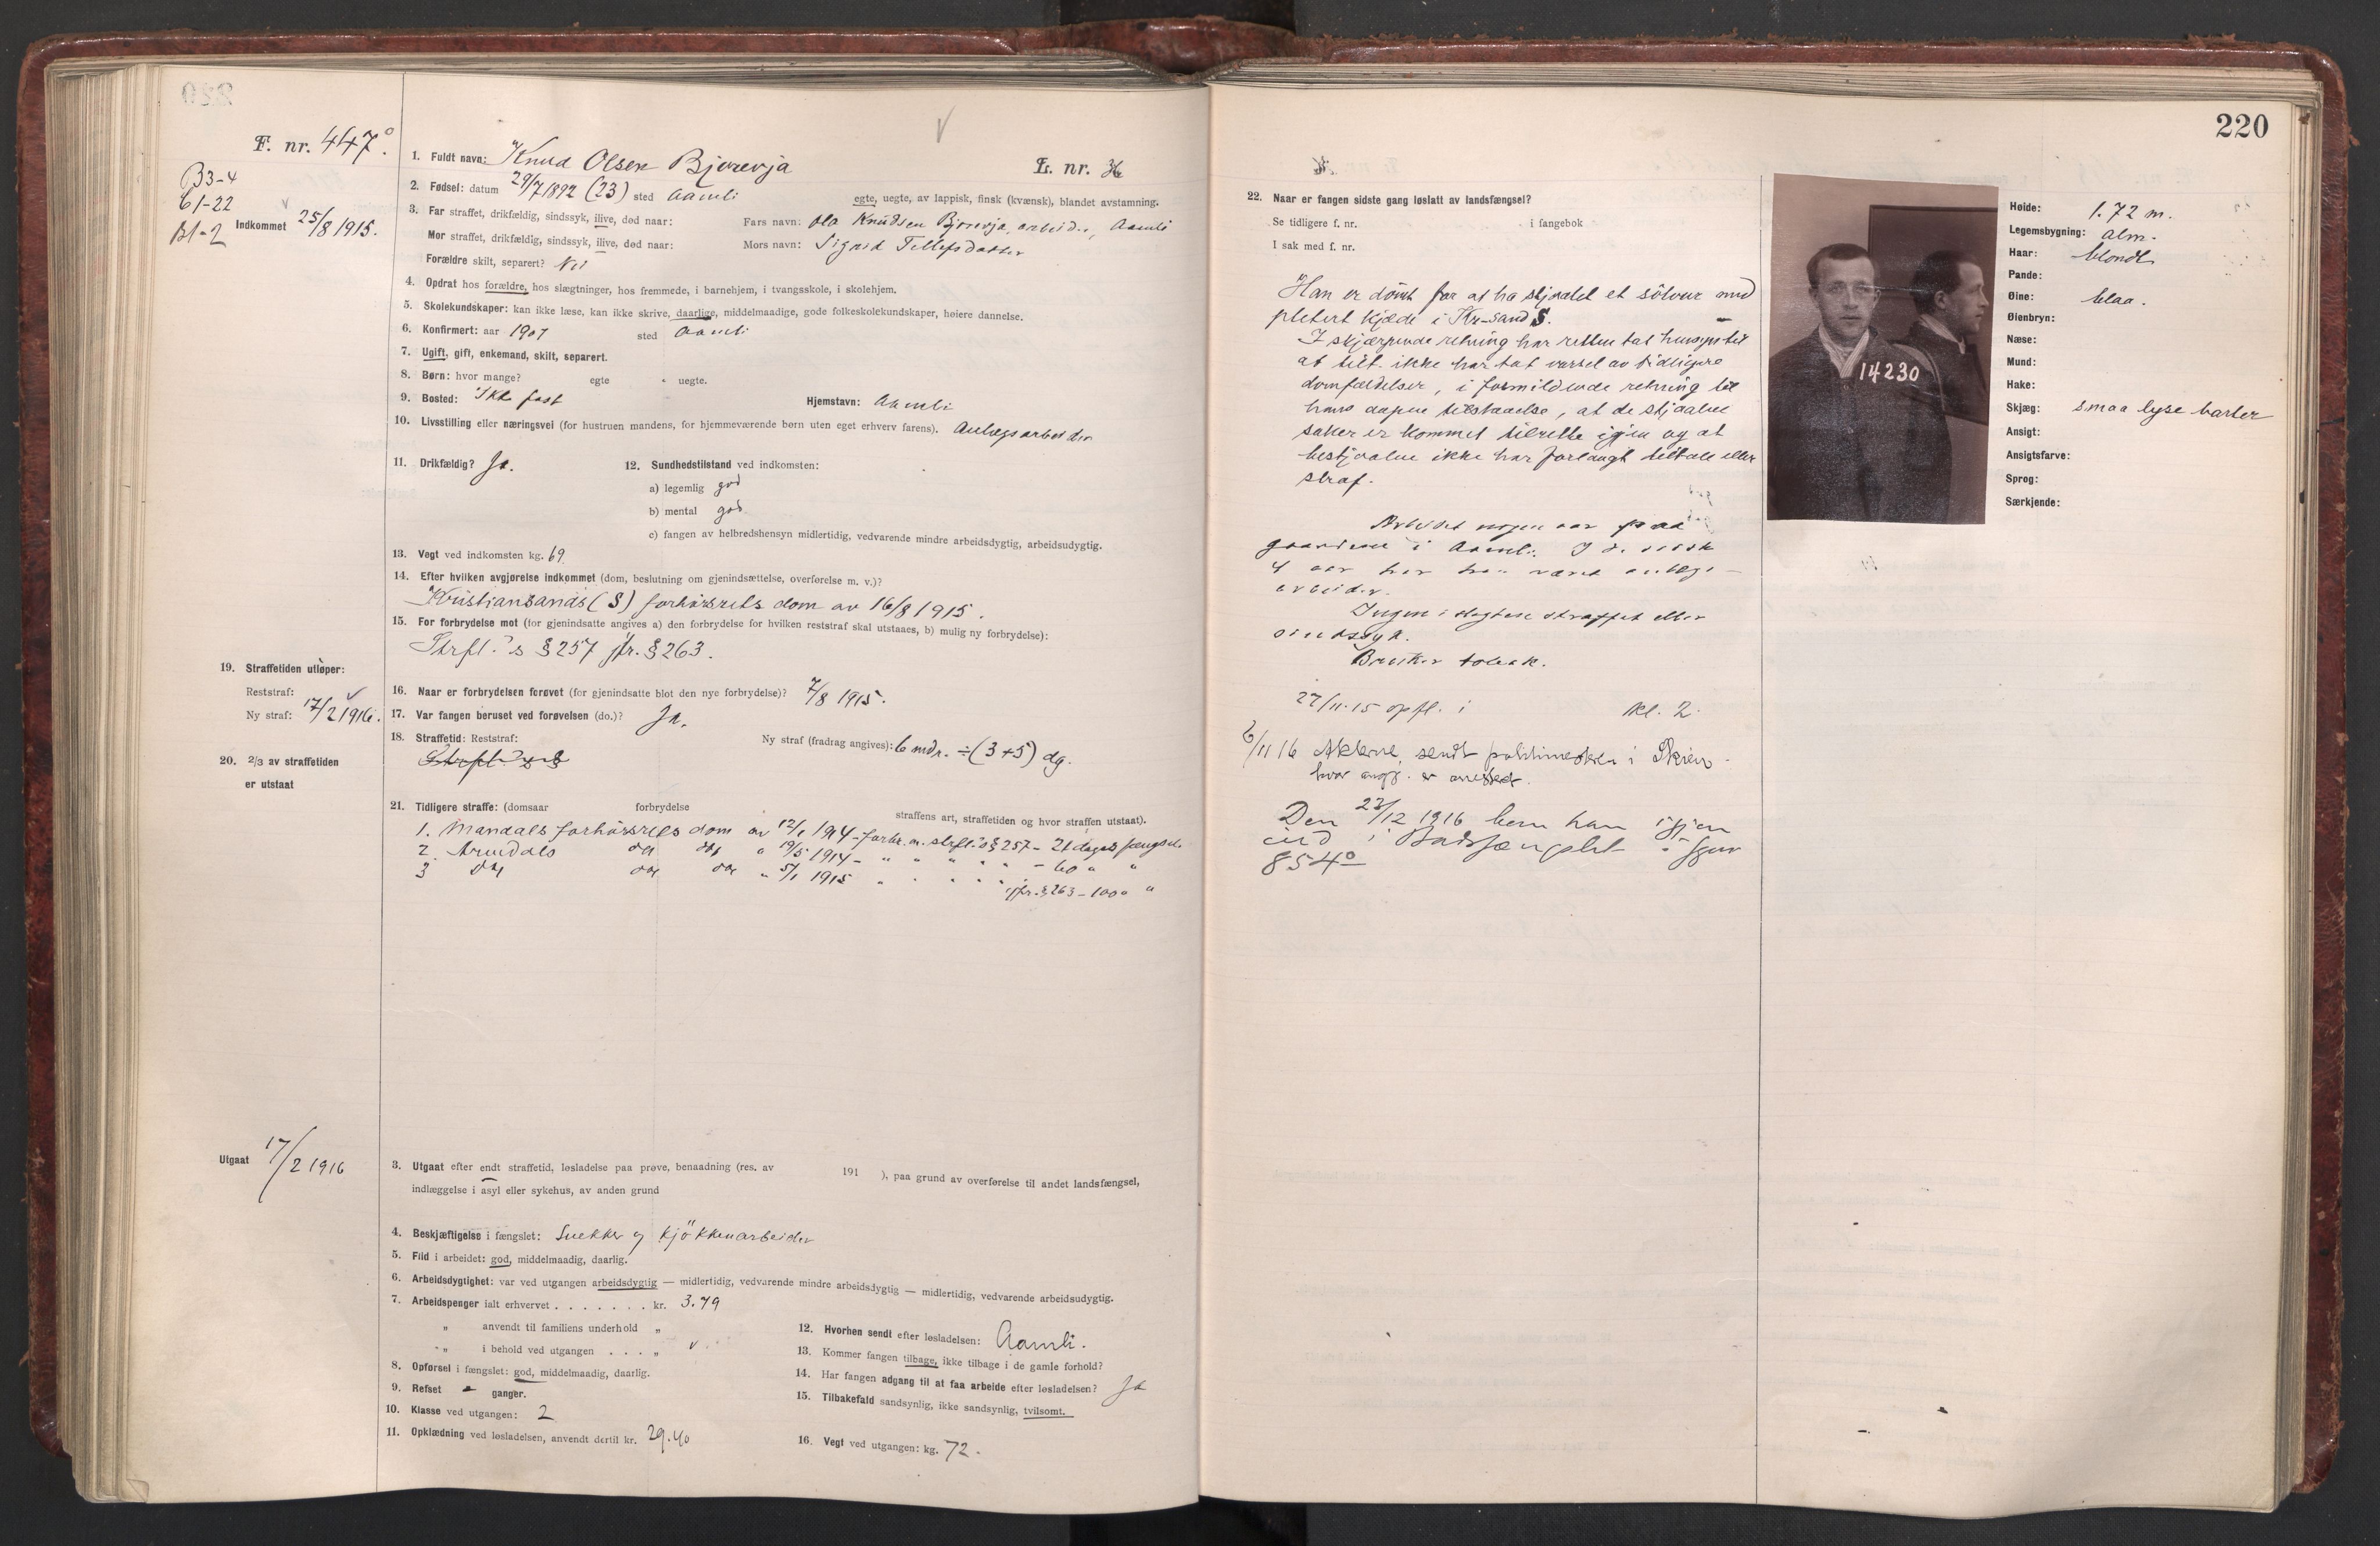 F. nr. 447°.
B3-4
61-22
B1-2
Indkommet 25/8 1915.
1. Fuldt navn: Knud Olsen Bjorevja
L. nr. 36
2. Fødsel: datum 29/7 1892 (23) sted Aamli
egte, uegte, av lappisk, finsk (kvænsk), blandet avstamning.
3. Far straffet, drikfældig, sindssyk, ilive, død naar: Fars navn: Ola Knudsen Bjorevja, arbeider, Aamli
Mor straffet, drikfældig, sindssyk, ilive, død naar: Mors navn: Sigrid Tellefsdatter
Forældre skilt, separert? Nei
4. Opdrat hos forældre, hos slægtninger, hos fremmede, i barnehjem, i tvangsskole, i skolehjem.
5. Skolekundskaper: kan ikke læse, kan ikke skrive, daarlige, middelmaadige, gode folkeskolekundskaper, høiere dannelse.
6. Konfirmert: aar 1907 sted Aamli
7. Ugift, gift, enkemand, skilt, separert.
8. Børn: hvor mange? egte uegte.
9. Bosted: Ikke fast Hjemstavn: Aamli
10. Livsstilling eller næringsvei (for hustruen mandens, for hjemmeværende børn uten eget erhverv farens). Anlægsarbeider
11. Drikfældig? Ja. 12. Sundhedstilstand ved indkomsten:
a) legemlig god
b) mental god
c) fangen av helbredshensyn midlertidig, vedvarende mindre arbeidsdygtig, arbeidsudygtig.
13. Vegt ved indkomsten kg. 69.
14. Efter hvilken avgjørelse indkommet (dom, beslutning om gjenindsættelse, overførelse m. v.)?
Kristiansands (S) forhørsrets dom av 16/8 1915.
15. For forbrydelse mot (for gjenindsatte angives a) den forbrydelse for hvilken reststraf skal utstaaes, b) mulig ny forbrydelse):
Strfl.'s § 257 jfr. § 263.
19. Straffetiden utløper:
Reststraf:
Ny straf: 17/2 1916.
16. Naar er forbrydelsen forøvet (for gjenindsatte blot den nye forbrydelse)? 7/8 1915.
17. Var fangen beruset ved forøvelsen (do.)? Ja.
18. Straffetid: Reststraf: Ny straf (fradrag angives): 6 mdr. ÷ (3+5) dg.
20. 2/3 av straffetiden
er utstaat
21. Tidligere straffe: (domsaar forbrydelse straffens art, straffetiden og hvor straffen utstaat).
1. Mandals forhørsrets dom av 12/1 1914 - forbr. m. strfl.'s § 257 - 21 dages fængsel.
2. Arendals do do " 19/5 1914 - " " " " " - 60 " "
3 do do do " 5/1 1915 " " " " " jfr. § 263 - 100 " "
Utgaat 17/2 1916
3. Utgaat efter endt straffetid, løsladelse paa prøve, benaadning (res. av 191 ), paa grund av overførelse til andet landsfængsel,
indlæggelse i asyl eller sykehus, av anden grund
4. Beskjæftigelse i fængslet: Snekker og kjökkenarbeider
5. Flid i arbeidet: god, middelmaadig, daarlig.
6. Arbeidsdygtighet: var ved utgangen arbeidsdygtig — midlertidig, vedvarende mindre arbeidsdygtig — midlertidig, vedvarende arbeidsudygtig.
7. Arbeidspenger ialt erhvervet . . . . . . . kr. 3.79
„ anvendt til familiens underhold „
„ i behold ved utgangen . . . „
8. Opførsel i fængslet: god, middelmaadig, daarlig.
9. Refset - ganger.
10. Klasse ved utgangen: 2
11. Opklædning ved løsladelsen, anvendt dertil kr. 29.40
12. Hvorhen sendt efter løsladelsen: Aamli.
13. Kommer fangen tilbage, ikke tilbage i de gamle forhold?
14. Har fangen adgang til at faa arbeide efter løsladelsen? Ja
15. Tilbakefald sandsynlig, ikke sandsynlig, tvilsomt.
16. Vegt ved utgangen: kg. 72.
220
22. Naar er fangen sidste gang løslatt av landsfængsel?
Se tidligere f. nr. i fangebok
I sak med f. nr.
Han er dömt for at ha stjaalet et sölvur med
pletert kjæde i Kr-sand S.
I skjærpende retning har retten tat hensyn til
at tilt. ikke har tat varsel av tidligere
domfældelser, i formildende retning til
hans aapne tilstaaelse, at de stjaalne
saker er kommet tilrette igjen og at
bestjaalne ikke har forlangt tiltale eller
straf.
Arbeidet nogen aar paa
gaardene i Aamli. I de sidste
4 aar har han været anlægs-
arbeider.
Ingen i slegten straffet eller
sindssyk.
Bruker tobak.
27/11.15 opfl. i kl. 2.
6/11 16 Akterne sendt politimesteren i Skien
hvor angj. er arrestert.
Den 23/12 1916 kom han igjen
ind i Bodsfængslet - fgnr
854°
14230
Høide: 1.72 m.
Legemsbygning: alm.
Haar: blondt
Pande:
Øine: blaa.
Øienbryn:
Næse:
Mund:
Hake:
Skjæg: smaa lyse barter
Ansigt:
Ansigtsfarve:
Sprog:
Særkjende: